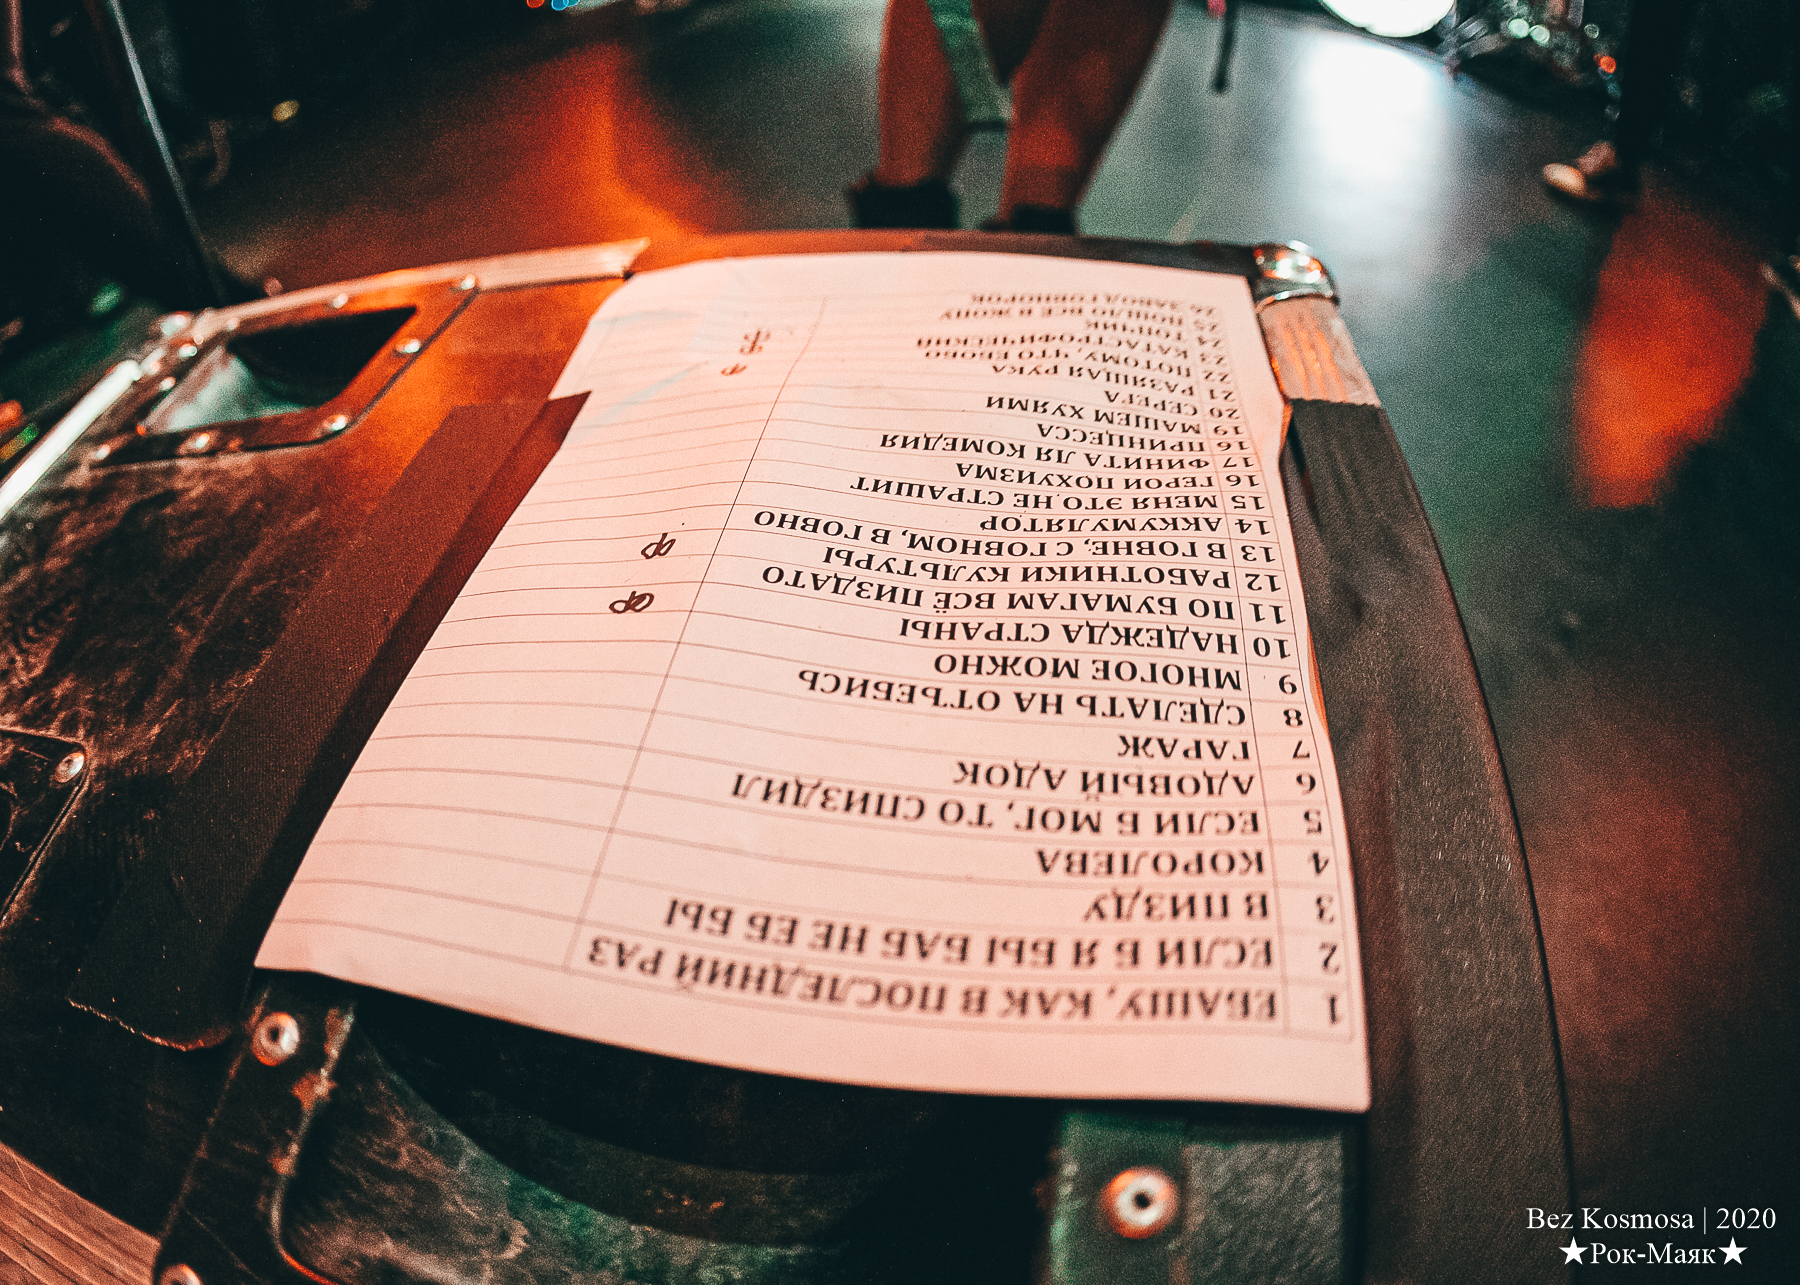 1 ЕБАШУ, КАК В ПОСЛЕДНИЙ РАЗ
2 ЕСЛИ Б Я БЫ БАБ НЕ ЕБ БЫ
3 В ПИЗДУ
4 КОРОЛЕВА
5 ЕСЛИ Б МОГ, ТО СПИЗДИЛ
6 АДОВЫЙ АДОК
7 ГАРАЖ
8 СДЕЛАТЬ НА ОТЪЕБИСЬ
9 МНОГОЕ МОЖНО
10 НАДЕЖДА СТРАНЫ
11 ПО БУМАГАМ ВСЁ ПИЗДАТО
12 РАБОТНИКИ КУЛЬТУРЫ
13 В ГОВНЕ, С ГОВНОМ, В ГОВНО
14 АККУМУЛЯТОР
15 МЕНЯ ЭТО НЕ СТРАШИТ
16 ГЕРОИ ПОХУИЗМА
17 ФИНИТА ЛЯ КОМЕДИЯ
16 ПРИНЦЕССА
19 МАШЕМ ХУЯМИ
20 СЕРЕГА
21 РАЗЯЩАЯ РУКА
22 ПОТОМУ, ЧТО ЕБОБО
23 КАТАСТРОФИЧЕСКИЙ
24 ТОПЧИК
25 ПОШЛО ВСЁ В ЖОПУ
26 ЗАВОД ГОВНОРОК
Bez Kosmosa | 2020
★Рок-Маяк★